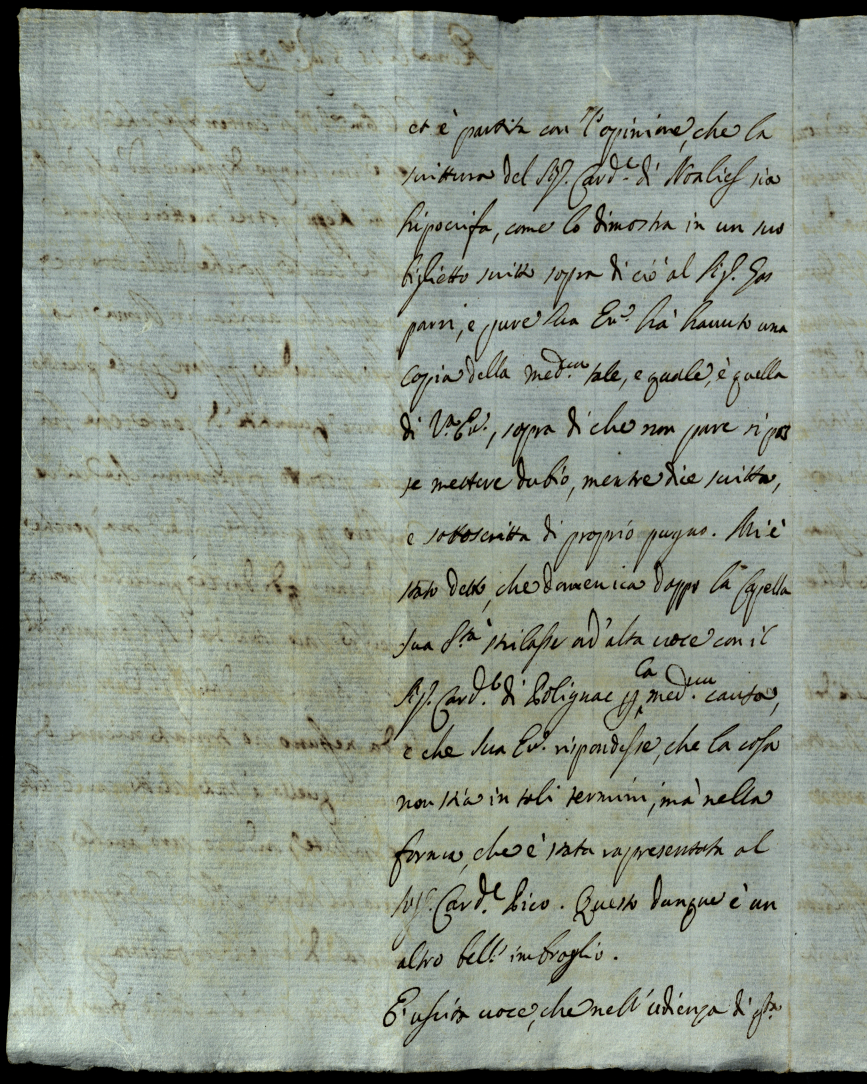 et è partita con l'opinione, che la
scrittura del Sig.r Card.le di Noalies sia
hipocrifa, come lo dimostra in un suo
biglietto scritto sopra di ciò al Sig.r Gas
parri, e pure Sua Em.a hà havuto una
copia della med.ma tale, e quale, è quella
di V.a Em.a, sopra di che non pare si pos
se mettere dubio, mentre dice scritta,
e sottoscritta di proprio pugno. Mi è
stato detto, che domenica doppo la Capella
Sua S.tà strilasse ad'alta voce con il
Sig.r Card.le di Polignac p la med.ma causa,
e che Sua Em.a rispondesse, che la cosa
non stia in tali termini, mà nella
forma, che è stata rapresentata al
Sig.r Card.le Pico. Questo dunque è un
altro bell' imbroglio.
E' uscita voce, che nell'udienza di q.sta